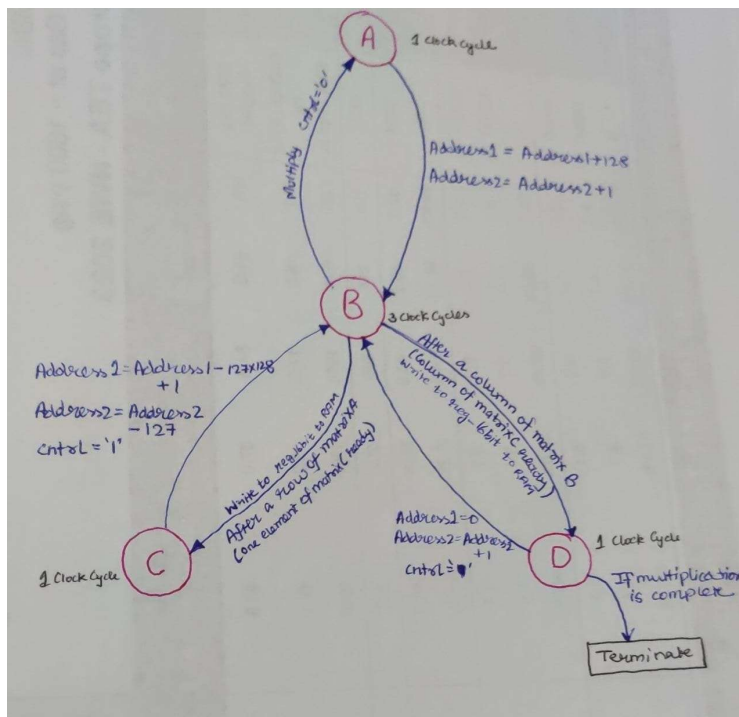 A
1 Clock Cycle
Multiply Cntrl='0'
Address1 = Address1+128
Address2 = Address2+1
B
3 Clock Cycles
Address1 = Address1 - 127x128
+1
Address2 = Address2
-127
Cntrl = '1'
Write to reg_16bit to RAM
After a row of matrix A
(one element of matrix C ready)
After a column of matrix B
(column of matrix C ready)
Write to reg-16bit to RAM
Address1=0
Address2=Address2
+1
Cntrl=
C
1 Clock Cycle
D
1 Clock Cycle
If multiplication
is complete
Terminate